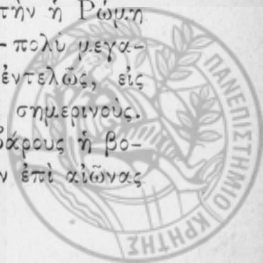 τὴν ἡ Ῥώμη
–πολὺ μεγα-
ἐντελῶς, εἰς
σημερινοὺς.
βάρους ἡ βο-
ν ἐπὶ αἰῶνας
ΠΑΝΕΠΙΣΤΗΜΙΟ ΚΡΗΤΗΣ